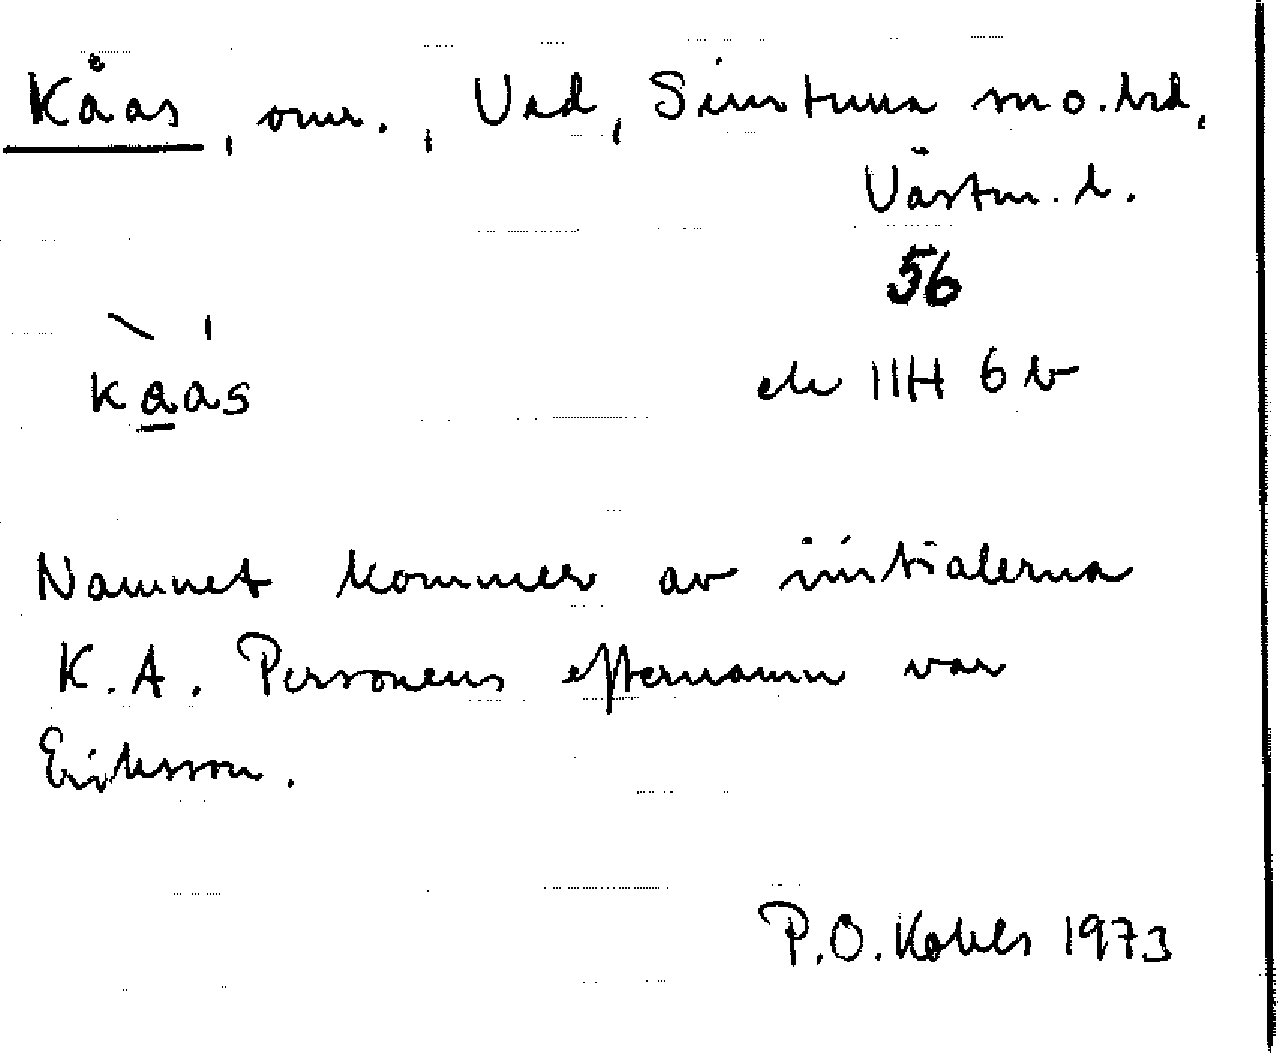 Kåas, omr., Vad, Simtuna sn o. hd,
Västm. l.
56
ek 11H 6 b
kaas
Namnet kommer av initialerna
K.A. Personens efternamn var
Eriksson.
P.O. Kohls 1973